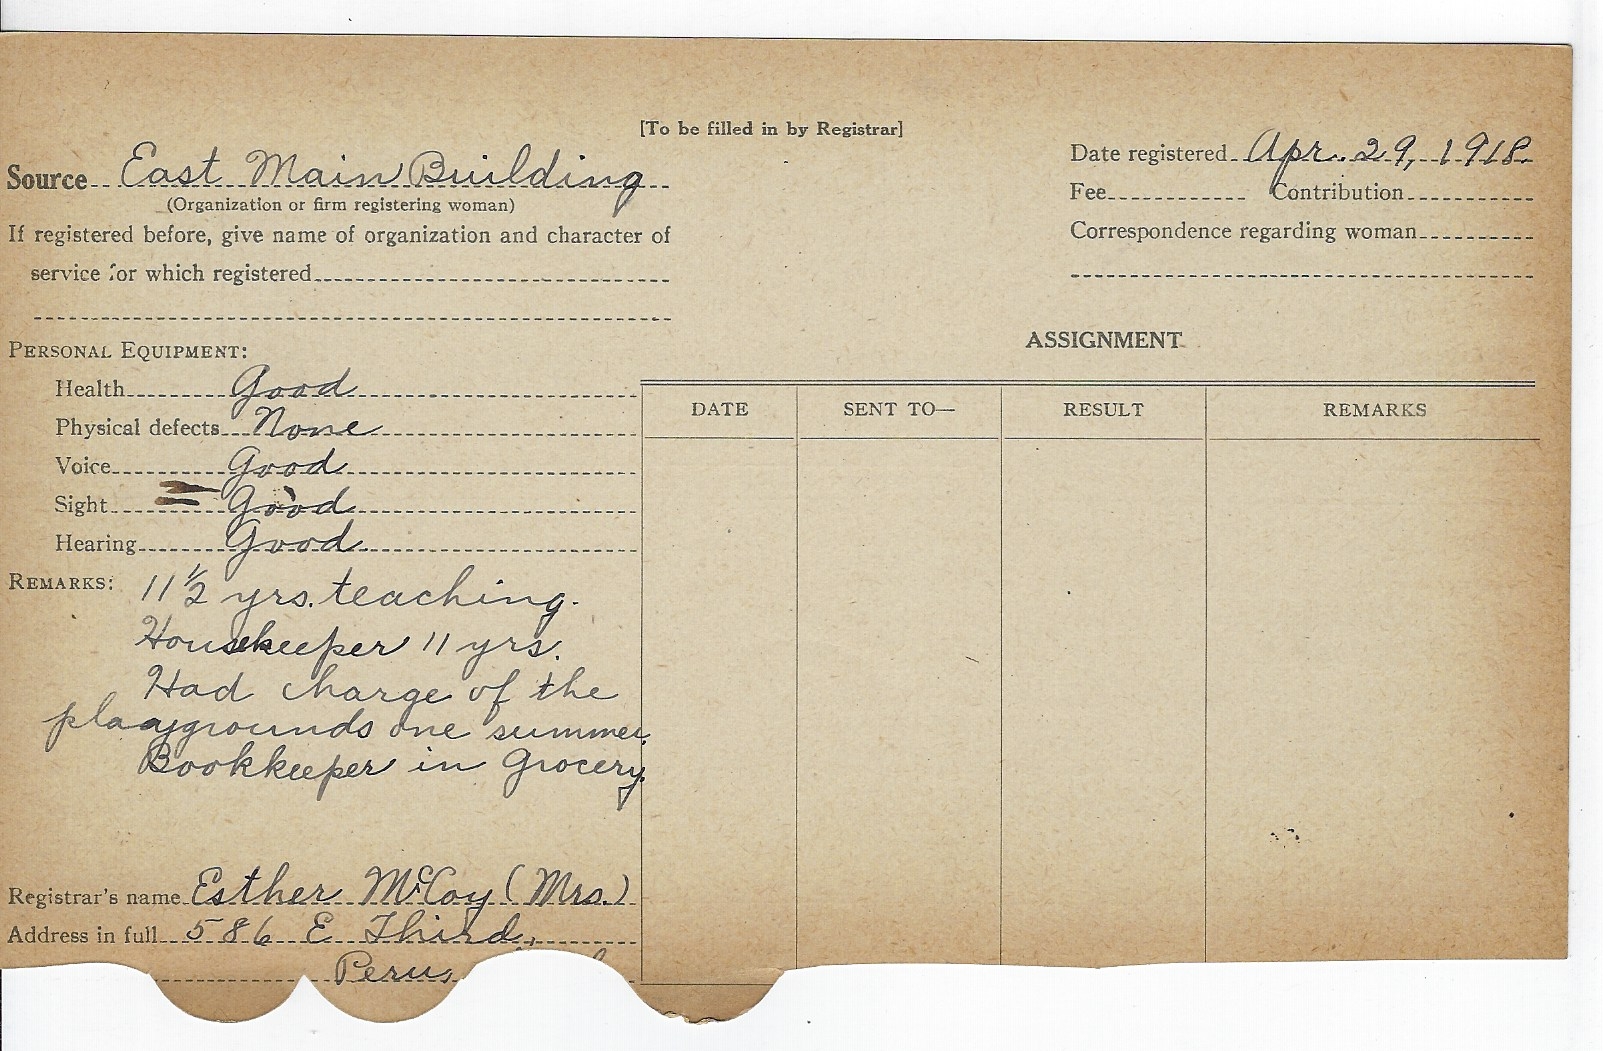 [To be filled in by Registrar]
Source East Main Building
(Organization or firm registering woman)
If registered before, give name of organization and character of
service for which registered
Date registered Apr. 29, 1918.
Fee Contribution
Correspondence regarding woman
PERSONAL EQUIPMENT:
Health Good
Physical defects None
Voice Good
Sight Good
Hearing Good
REMARKS: 11 1/2 yrs. teaching.
Housekeeper 11 yrs.
Had charge of the
playgrounds one summer.
Bookkeeper in Grocery.
Registrar's name Esther McCoy (Mrs.)
Address in full 586 E Third,
Peru,
ASSIGNMENT
DATE SENT TO— RESULT REMARKS